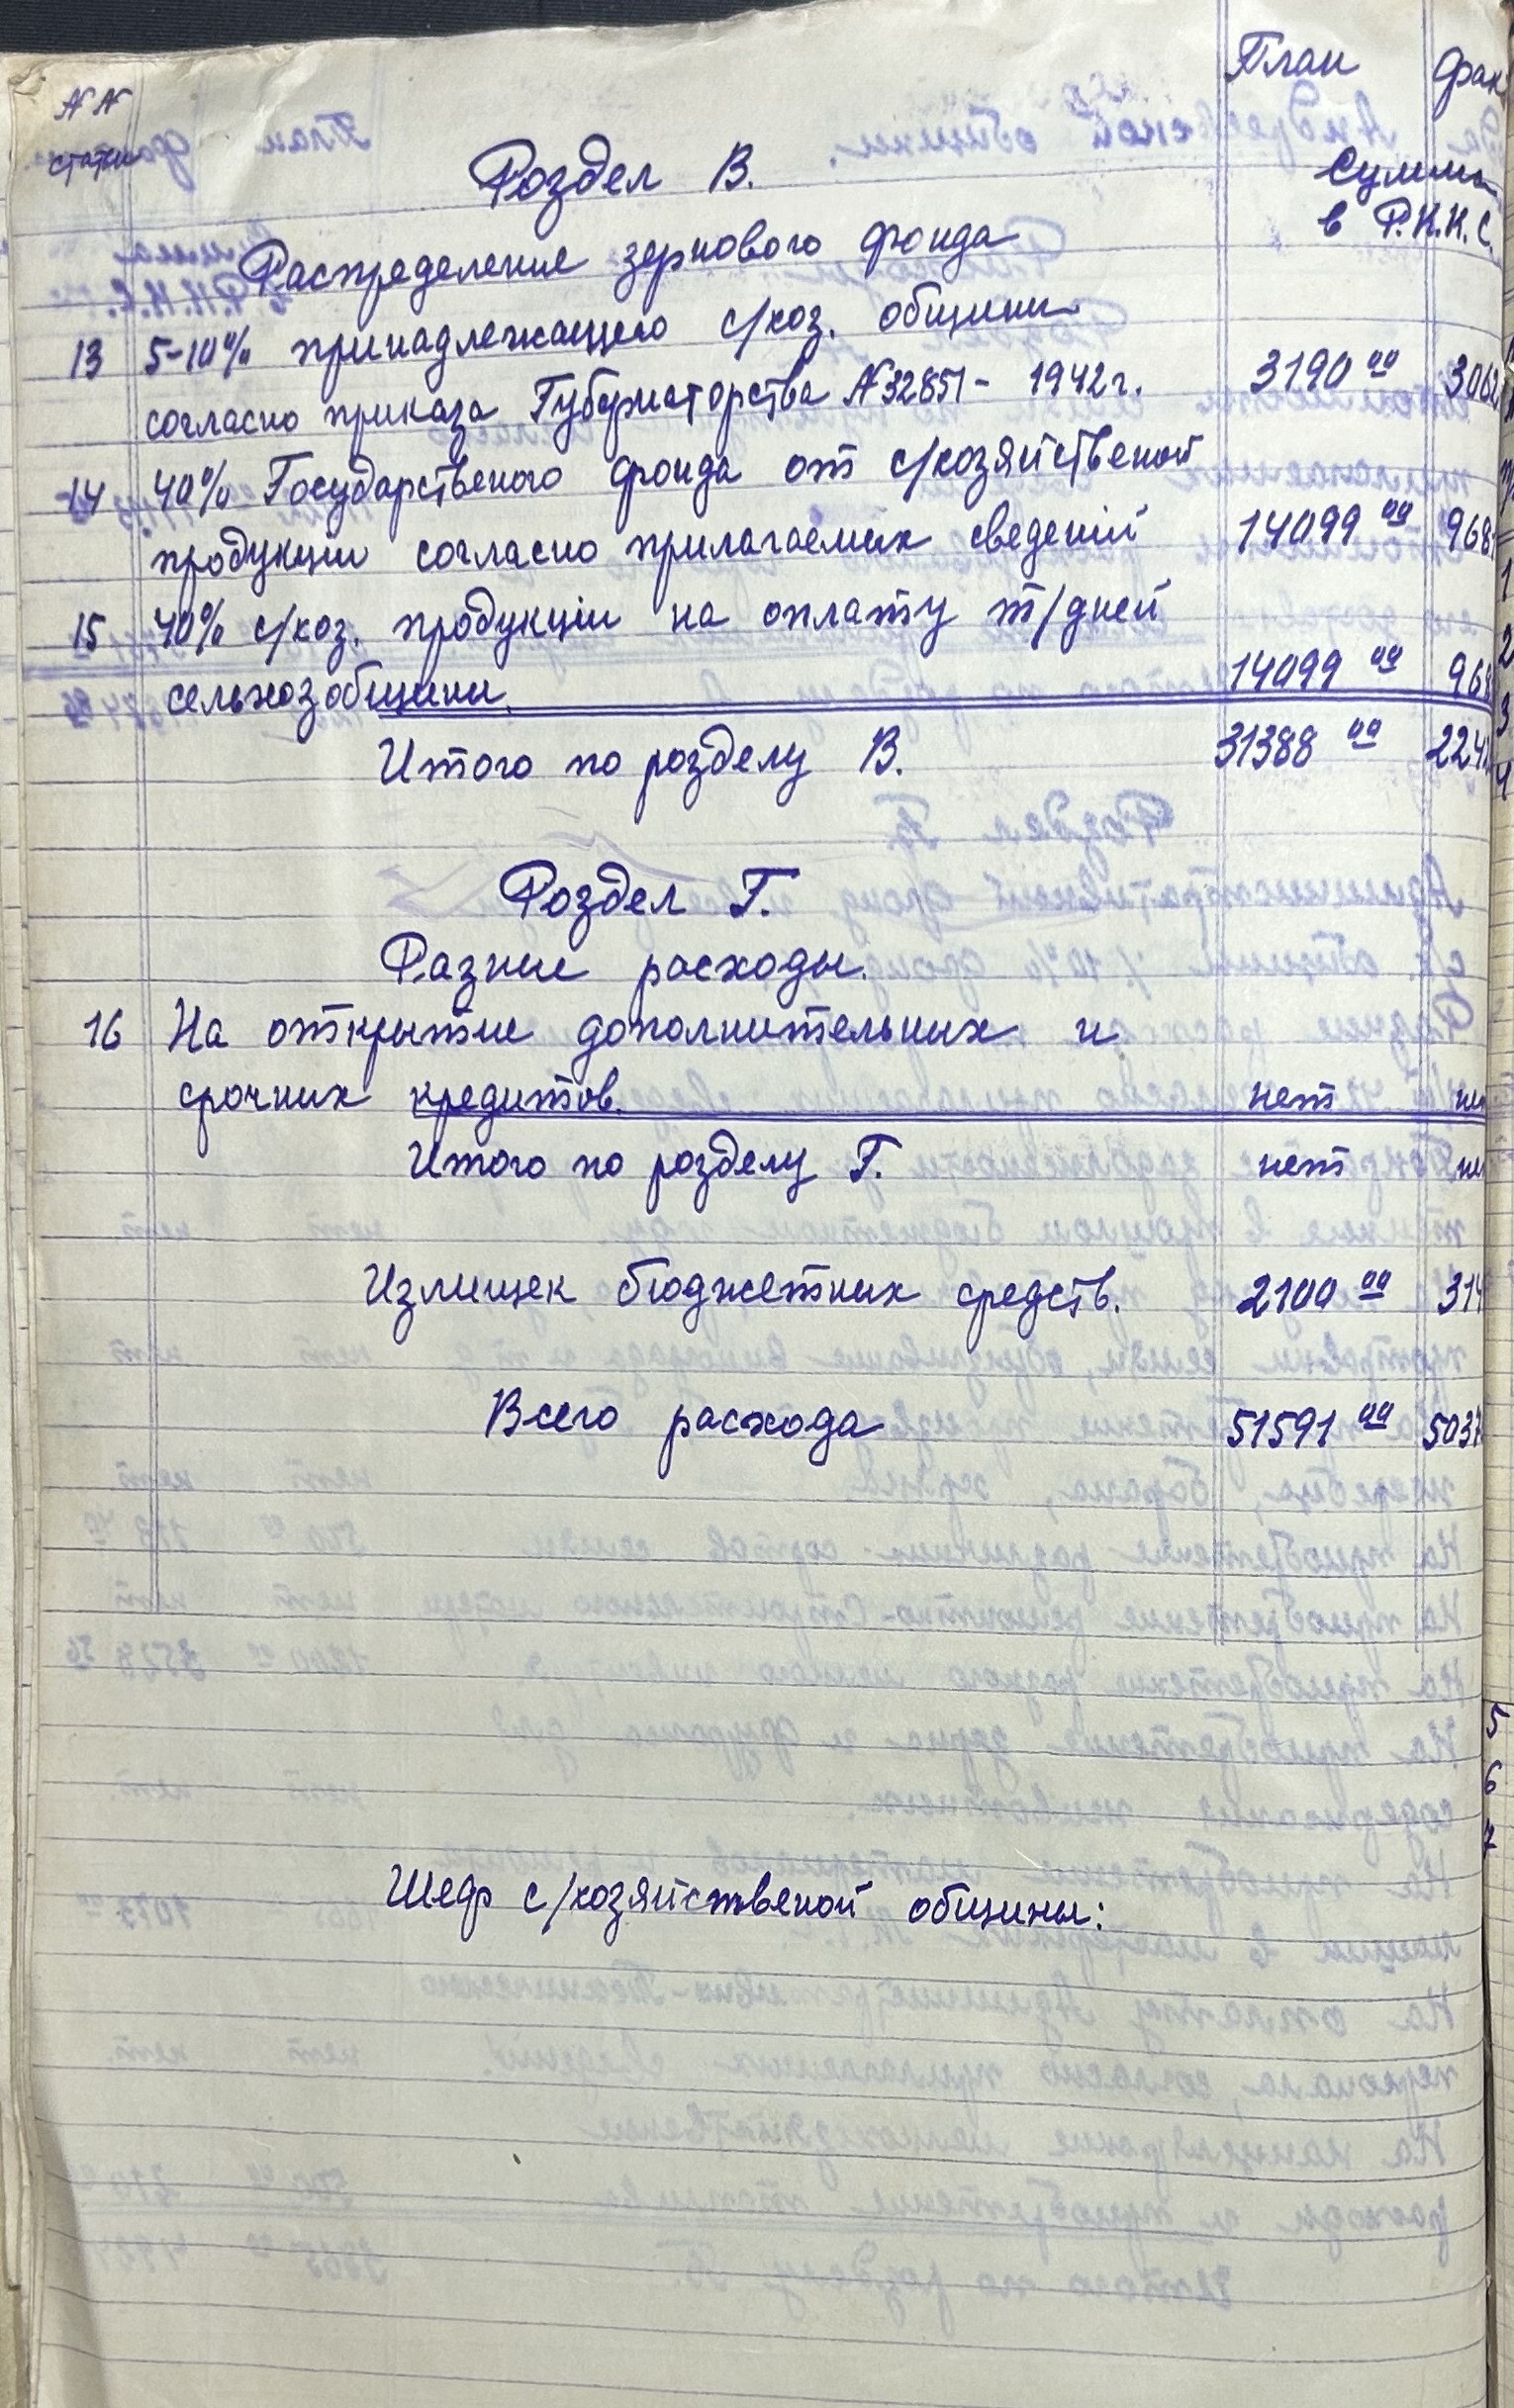 NN План Фак
статьи
Роздел В. Сумма
в Р.К.К.С.
Распределение зернового фонда
13 5-10% принадлежащего с/хоз. общини
согласно приказа Губернаторства N32851- 1942г. 3190 00 3062
14 40% Государственого фонда от с/хозяйственой
продукціи согласно прилагаемих сведеній 14099 00 968
15 40% с/хоз. продукціи на оплату т/дней
сельхозобщини. 14099 00 968
Итого по розделу В. 31388 00 224
Роздел Г.
Разние расходы.
16 На открытие дополнительних и
срочних кредитов. нет не
Итого по розделу Г. нет не
Излишек бюджетних средств. 2100 00 314
Всего расхода 51591 00 5037
Шеф с/хозяйственой общины: